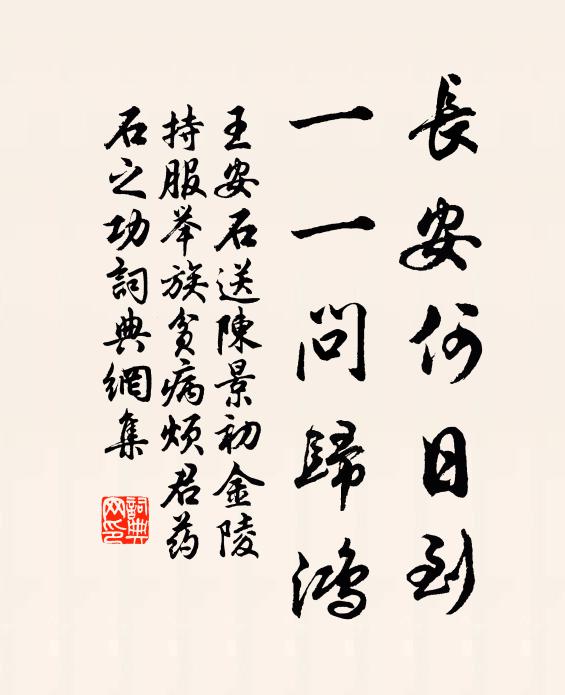 長安何日到
一一問歸鴻
王安石送陳景初金陵
持服举族贫病烦君药
石之功詞典網集
詞典
网印